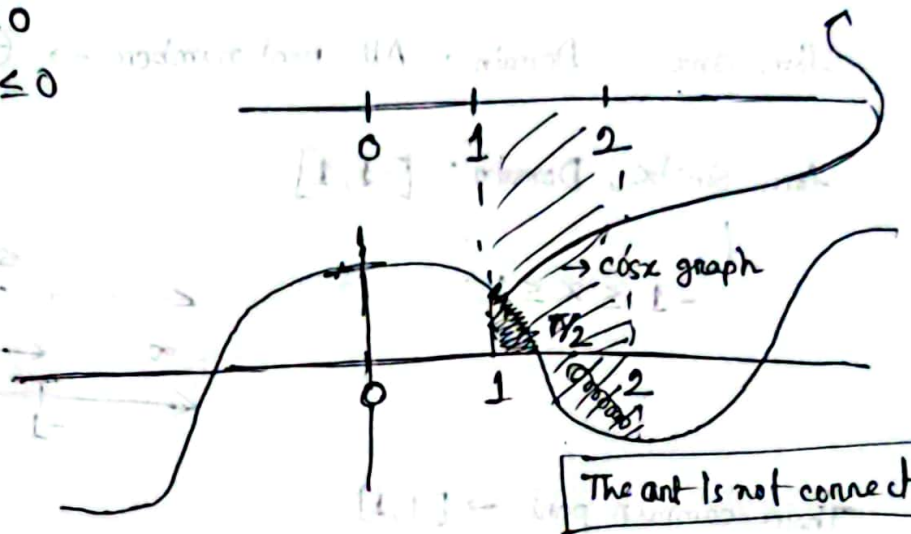 0
≤0
0 1 2
→ cosx graph
π/2
0 1 2
The ant is not connect